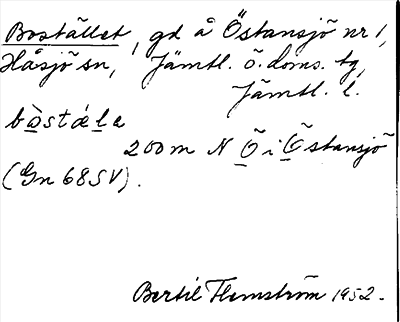 Boställlet, gd å Östansjö nr 1,
Håsjö sn, Jämtl. ö. doms. tg,
Jämtl. l.
bὰstǽla
200 m N Ö i Östansjö
(Gn 68SV).
Bertil Flemström 1952.